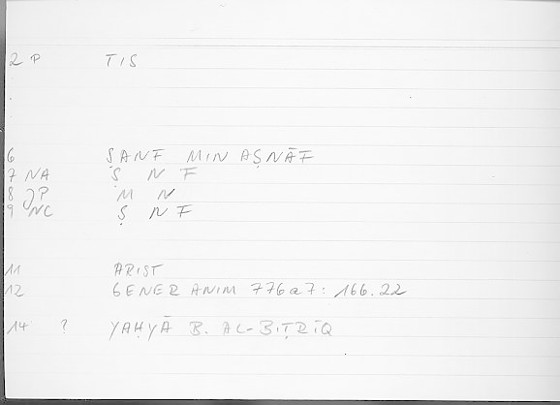 2 P TIS
6 ṢANF MIN AṢNĀF
7 NA Ṣ N F
8 JP M N
9 NC Ṣ N F
11 ARIST
12 GENER ANIM 776a7: 166.22
14 ? YAḤYĀ B. AL-BIṬRĪQ